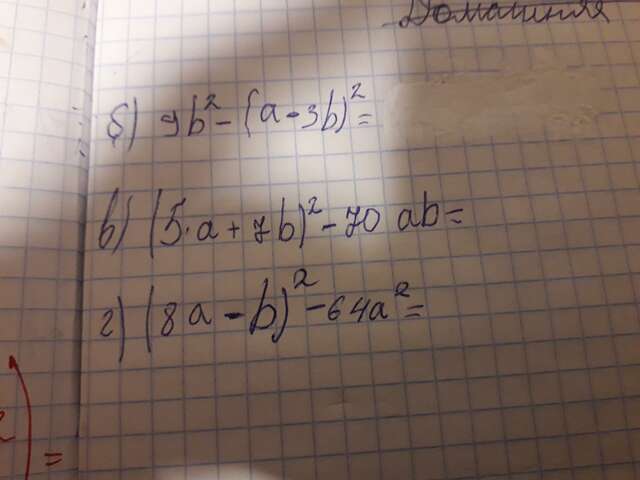 Домашняя
б) 9b² - (a - 3b)² =
в) (5·a + 7b)² - 70 ab =
г) (8a - b)² - 64a² =
) =